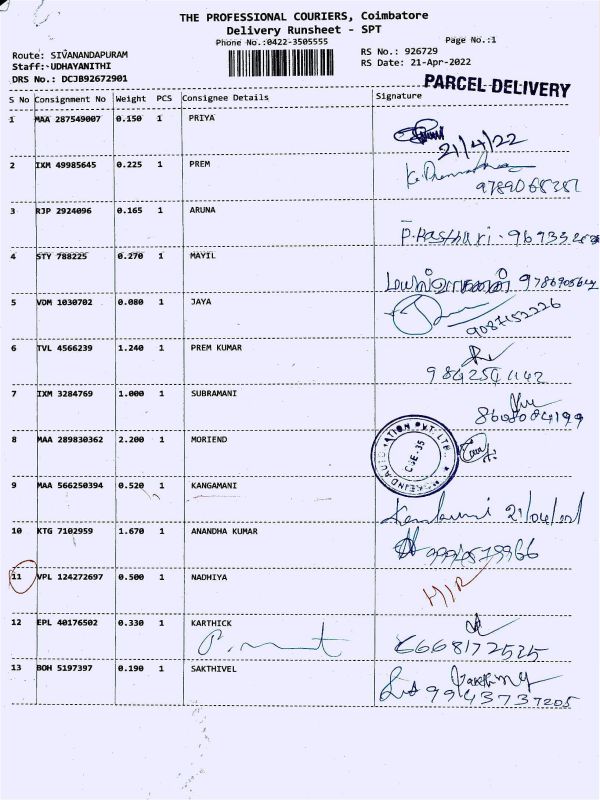 THE PROFESSIONAL COURIERS, Coimbatore
Delivery Runsheet - SPT
Phone No.:0422-3505555
Page No.:1
Route: SIVANANDAPURAM
RS No.: 926729
Staff: UDHAYANITHI
RS Date: 21-Apr-2022
DRS No.: DCJB92672901
PARCEL DELIVERY
S No Consignment No Weight PCS Consignee Details Signature
1 MAA 287549007 0.150 1 PRIYA
21/4/22
2 IXM 49985645 0.225 1 PREM
3 RJP 2924096 0.165 1 ARUNA
4 STY 788225 0.270 1 MAYIL
5 VDM 1030702 0.080 1 JAYA
9087152226
6 TVL 4566239 1.240 1 PREM KUMAR
9842541142
7 IXM 3284769 1.000 1 SUBRAMANI
8608084199
8 MAA 289830362 2.200 1 MORIEND
CBE-35
9 MAA 566250394 0.520 1 KANGAMANI
10 KTG 7102959 1.670 1 ANANDHA KUMAR
11 VPL 124272697 0.500 1 NADHIYA
12 EPL 40176502 0.330 1 KARTHICK
13 BOH 5197397 0.190 1 SAKTHIVEL
9943737205